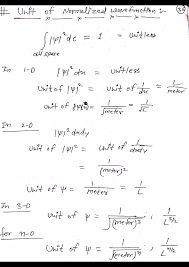 # Unit of Normalized wavefunction :-
∫|ψ|² dτ = 1 = unitless
all space
In 1-D |ψ|² dx = unitless
Unit of |ψ|² = unit of 1/dx = 1/meter
unit of ψ = 1/√meter = 1/√L
In 2-D
|ψ|² dxdy
Unit of |ψ|² = unit of 1/dxdy
= 1/(meter)²
Unit of ψ = 1/meter = 1/L
In 3-D Unit of ψ = 1/√(meter)³ , 1/L^3/2
for n-D
Unit of ψ = 1/√(meter)ⁿ , 1/L^n/2